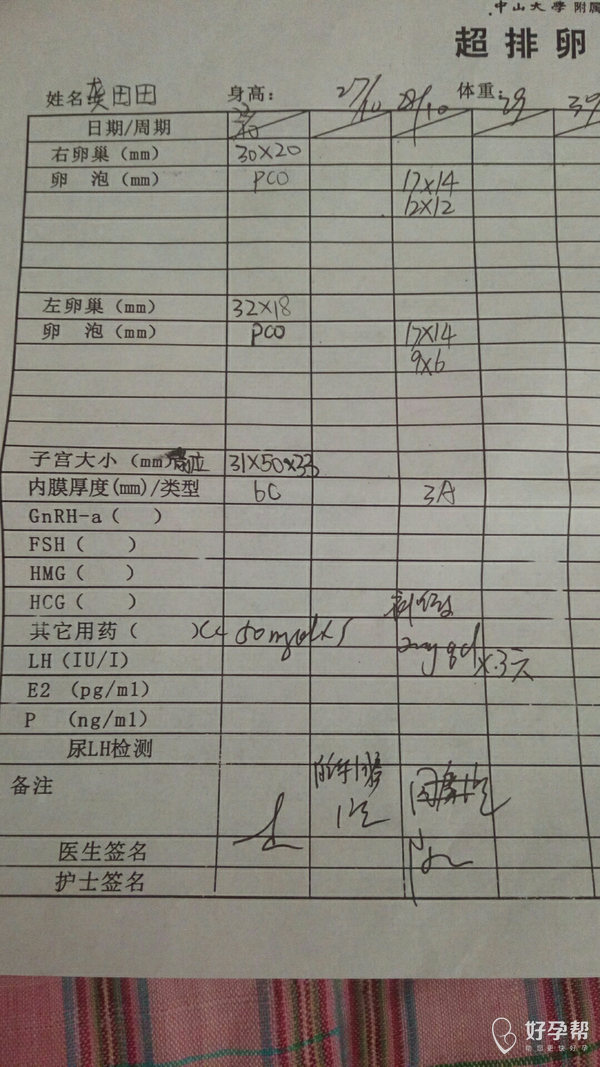 中山大學 附属
超排卵
姓名 田田 身高： 体重：
27/10 28/10 29
日期/周期
右卵巢（mm） 30×20
卵 泡（mm） PCO 17×14
12×12
左卵巢（mm） 32×18
卵 泡（mm） PCO 17×14
9×6
子宫大小（mm） 31×50×33
内膜厚度(mm)/类型 6C 3A
GnRH-a（ ）
FSH（ ）
HMG（ ）
HCG（ ）
其它用药（ ） 50mg
LH（IU/I） 2mg qd ×3天
E2 （pg/ml）
P （ng/ml）
尿LH检测
备注
医生签名
护士签名
好孕帮
助您更快好孕